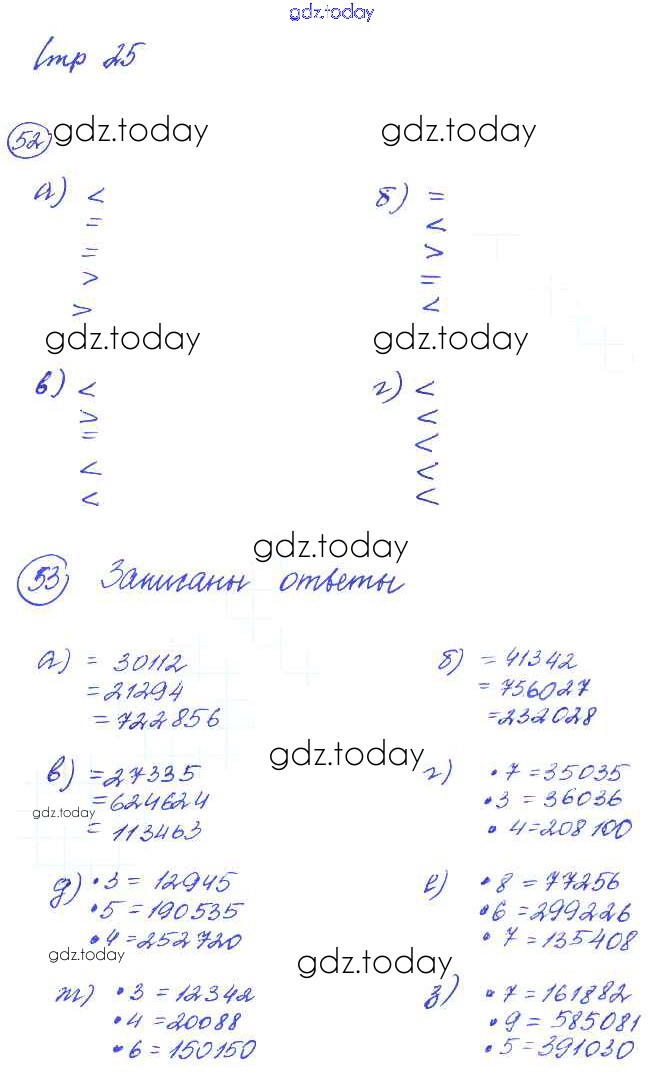 gdz.today
Стр 25
52 gdz.today gdz.today
а) < б) =
= <
= >
> =
> <
gdz.today gdz.today
в) < г) <
> <
= <
< <
< <
gdz.today
53) Записаны ответы
а) = 30112 б) = 41342
= 21294 = 756027
= 722856 = 232028
gdz.today
в) = 27335 г) • 7 = 35035
gdz.today
= 624624 • 3 = 36036
= 113463 • 4 = 208100
д) • 3 = 12945 е) • 8 = 77256
• 5 = 190535 • 6 = 299226
• 4 = 252720 • 7 = 135408
gdz.today gdz.today
ж) • 3 = 12342 з) • 7 = 161882
• 4 = 20088 • 9 = 585081
• 6 = 150150 • 5 = 391030